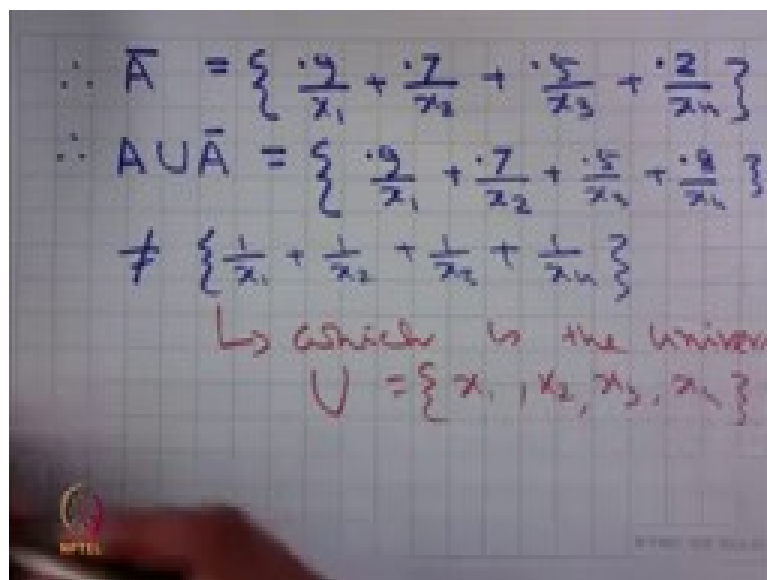 ∴ Ā = { .9/x₁ + .7/x₂ + .5/x₃ + .2/x₄ }
∴ A ∪ Ā = { .9/x₁ + .7/x₂ + .5/x₃ + .8/x₄ }
≠ { 1/x₁ + 1/x₂ + 1/x₃ + 1/x₄ }
↳ which is the univer
U = { x₁, x₂, x₃, x₄ }
NPTEL